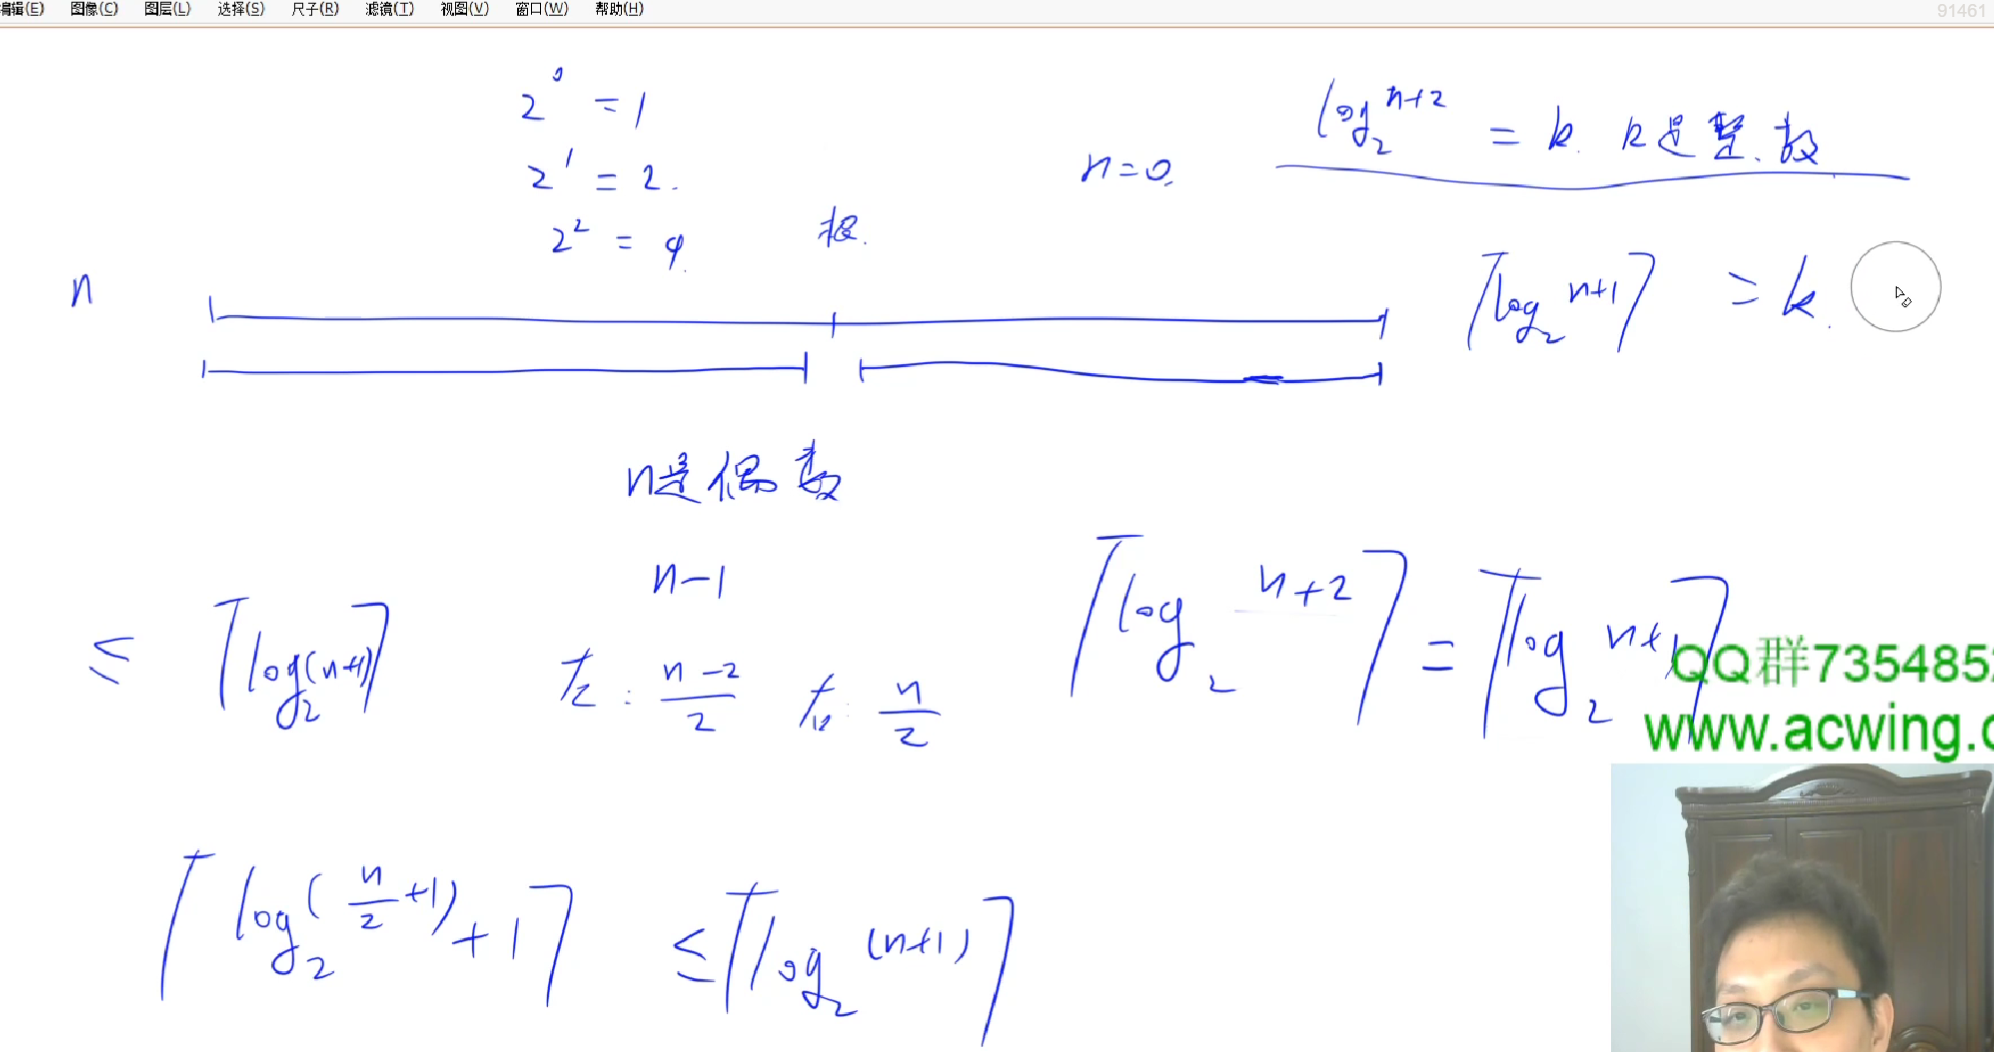 编辑(E) 图像(C) 图层(L) 选择(S) 尺子(R) 滤镜(T) 视图(V) 窗口(W) 帮助(H)
91461
2^0 = 1
2^1 = 2.
2^2 = 4.
n=0.
log_2^{n+2} = k. k是整.数
根.
n
⌈log_2^{n+1}⌉ = k.
n是偶数
n-1
≤ ⌈log_2(n+1)⌉
左: \frac{n-2}{2} 右: \frac{n}{2}
⌈log_2^{n+2}⌉ = ⌈log_2^{n+1}⌉
QQ群735485
www.acwing.c
⌈log_2(\frac{n}{2}+1)+1⌉ ≤ ⌈log_2^{(n+1)}⌉